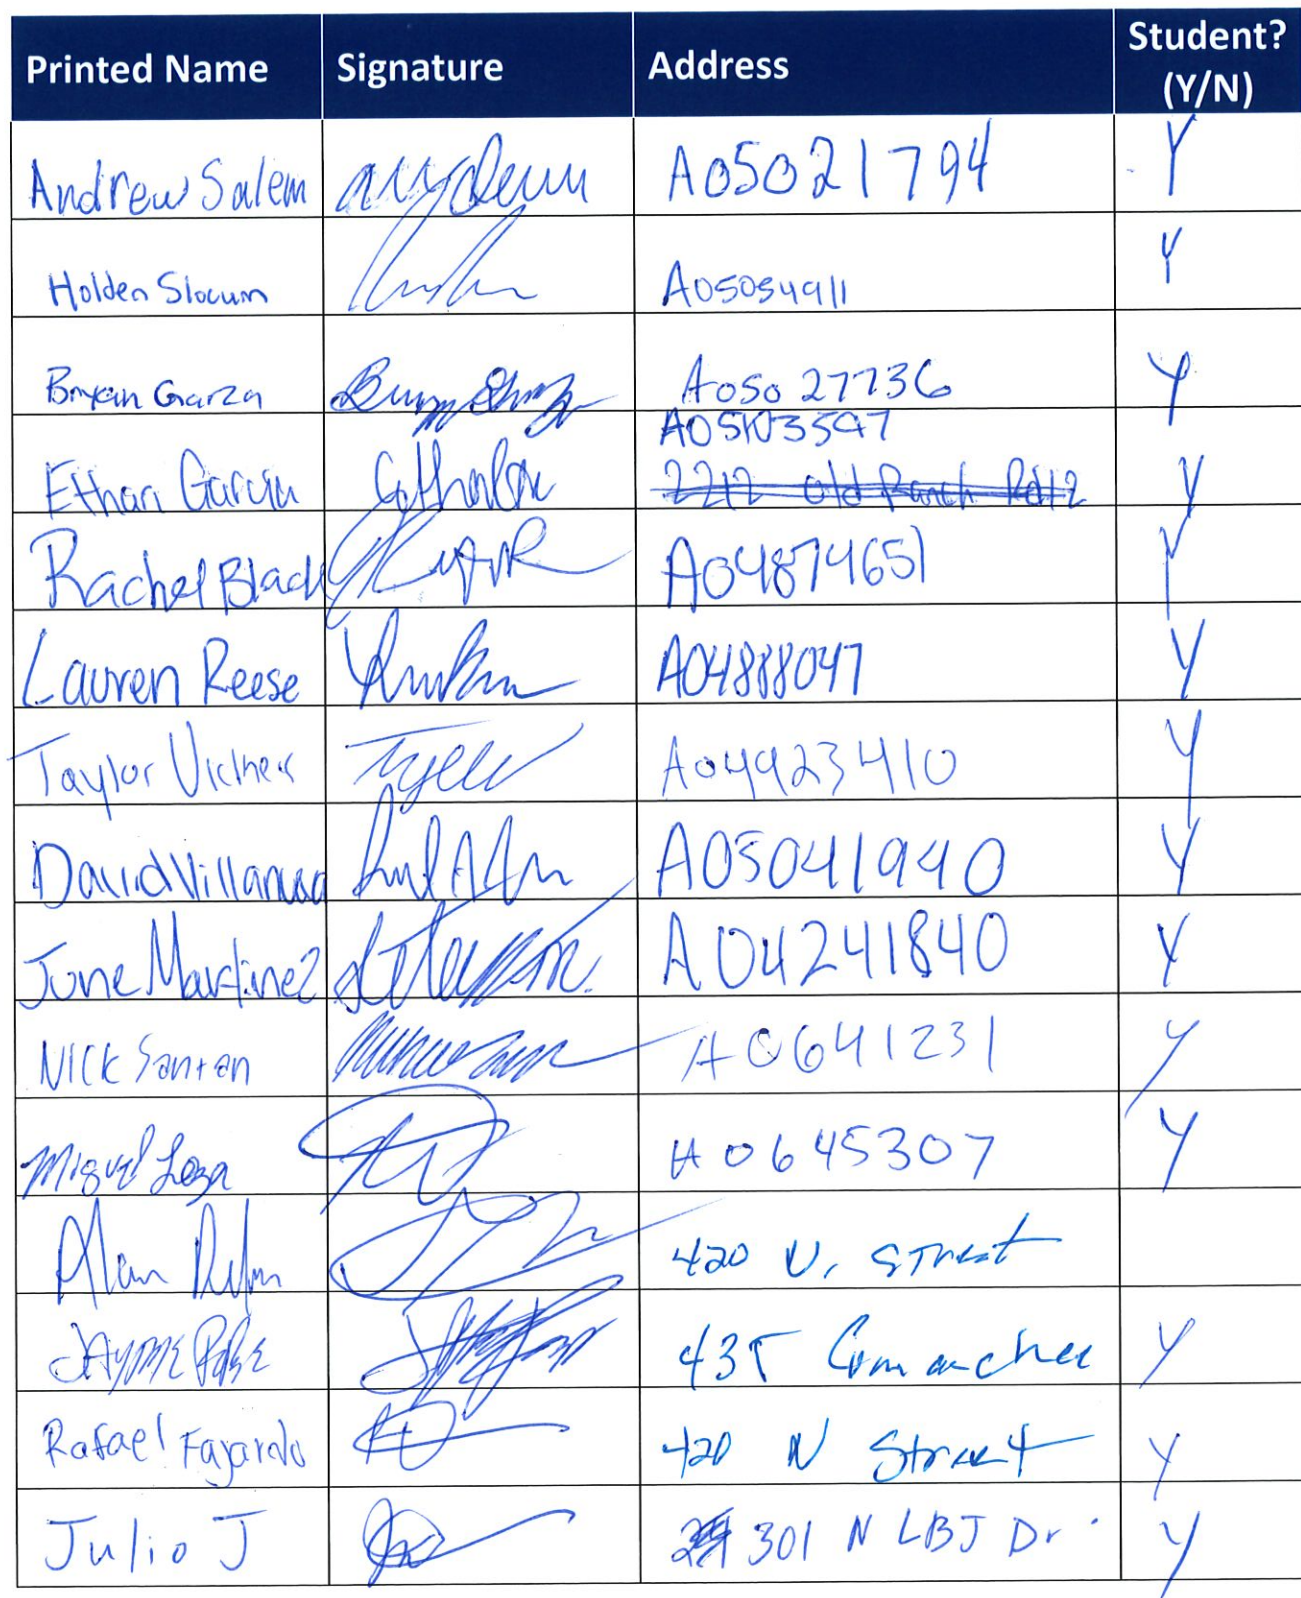 Printed Name Signature Address Student? (Y/N)
Andrew Salem A05021794 Y
Holden Slocum A05054911 Y
Bryan Garza A05027736 Y
A05103597
Ethan Garcia 2212 Old Ranch Rd 12 Y
Rachel Black A04874651 Y
Lauren Reese A04888047 Y
Taylor A04923410 Y
David Villanueva A05041940 Y
June Martinez A04241840 Y
Nick Santan A0641231 Y
Miguel Loza A0645307 Y
Alan 420 N. Street
Jayme 435 Comanchee Y
Rafael Fajardo 420 N Street Y
Julio J 301 N LBJ Dr. Y